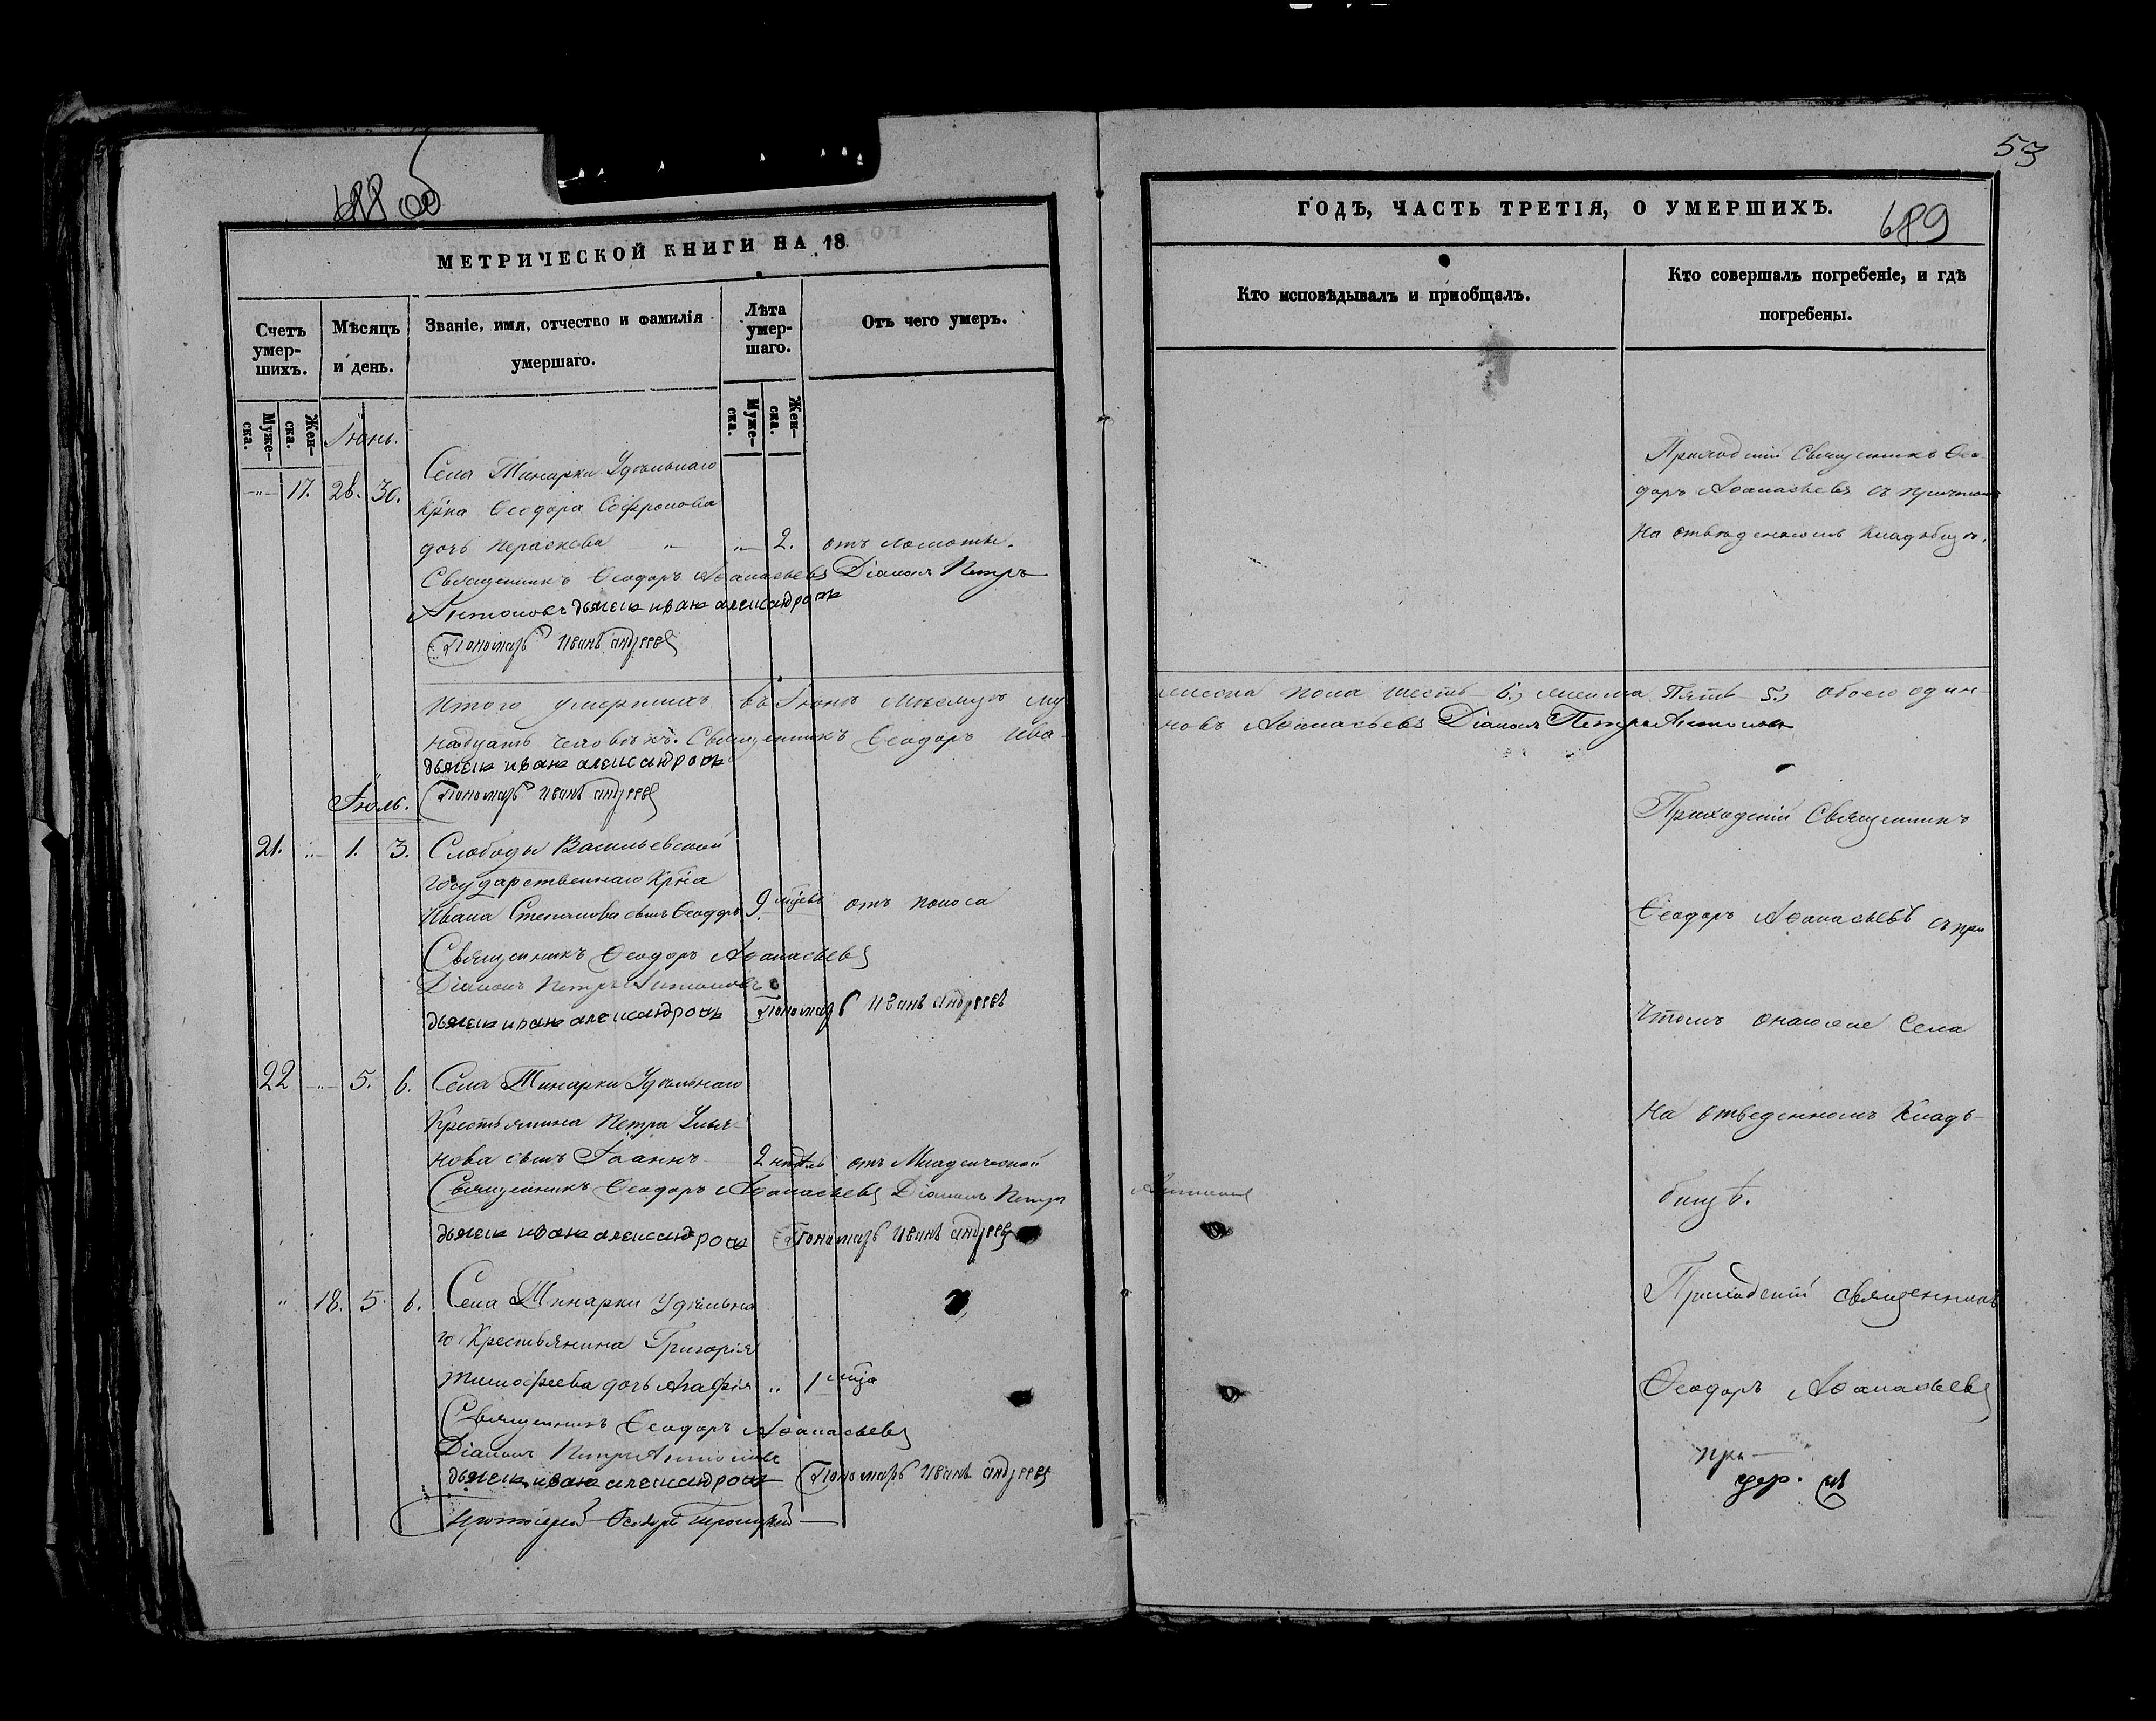 688 об
МЕТРИЧЕСКОЙ КНИГИ НА 18
Счетъ умер-шихъ.
Мѣсяцъ и день.
Званіе, имя, отчество и фамилія умершаго.
Лѣта умер-шаго.
Отъ чего умеръ.
Муже-ска.
Жен-ска.
Муже-ска.
Жен-ска.
Іюнь.
Села Тинарки Удѣльнаго
17. 28. 30.
Крѣна Ѳеодора Софронова
дочь Параскева 2. отъ ломоты.
Священникъ Ѳеодоръ Аѳанасьевъ Діаконъ Петръ
Антоновъ дьячекъ иванъ александровъ
Пономарь Иванъ андреевъ
Итого умершихъ въ Іюнѣ Мѣсяцѣ му
надцать человѣкъ. Священникъ Ѳеодоръ Ива
дьячекъ иванъ александровъ
Іюль.
Пономарь Иванъ андреевъ
21. 1. 3. Слободы Васильевской
государственнаго Крѣна
Ивана Степанова сынъ Ѳеодоръ 9 мцевъ отъ поноса
Священникъ Ѳеодоръ Аѳанасьевъ
Діаконъ Петръ Антоновъ
дьячекъ иванъ александровъ Пономарь Иванъ Андреевъ
22 5. 6. Села Тинарки Удѣльнаго
Крестьянина Петра Улья-
нова сынъ Іоаннъ 2 недѣль отъ Младенческой
Священникъ Ѳеодоръ Аѳанасьевъ Діаконъ Петръ
дьячекъ иванъ александровъ Пономарь Иванъ андреевъ
18. 5. 6. Села Тинарки Удѣльна
го Крестьянина Григорія
Тимофеева дочь Агафія 1 мца
Священникъ Ѳеодоръ Аѳанасьевъ
Діаконъ Петръ Антоновъ
дьячекъ иванъ александровъ Пономарь Иванъ андреевъ
Протоіерей Ѳеодоръ Троицкій
53
ГОДЪ, ЧАСТЬ ТРЕТІЯ, О УМЕРШИХЪ.
689
Кто исповѣдывалъ и пріобщалъ.
Кто совершалъ погребеніе, и гдѣ погребены.
Приходскій Священникъ Ѳео
доръ Аѳанасьевъ съ причтомъ
На отведенномъ кладбищѣ.
жеска пола шесть 6., женска Пять 5., обоего один
новъ Аѳанасьевъ Діаконъ Петръ Антоновъ
Приходскій Священникъ
Ѳеодоръ Аѳанасьевъ съ при
чтомъ онагоже Села
На отведенномъ Кладь-
Антоновъ
бищѣ.
Приходскій священникъ
Ѳеодоръ Аѳанасьевъ
при